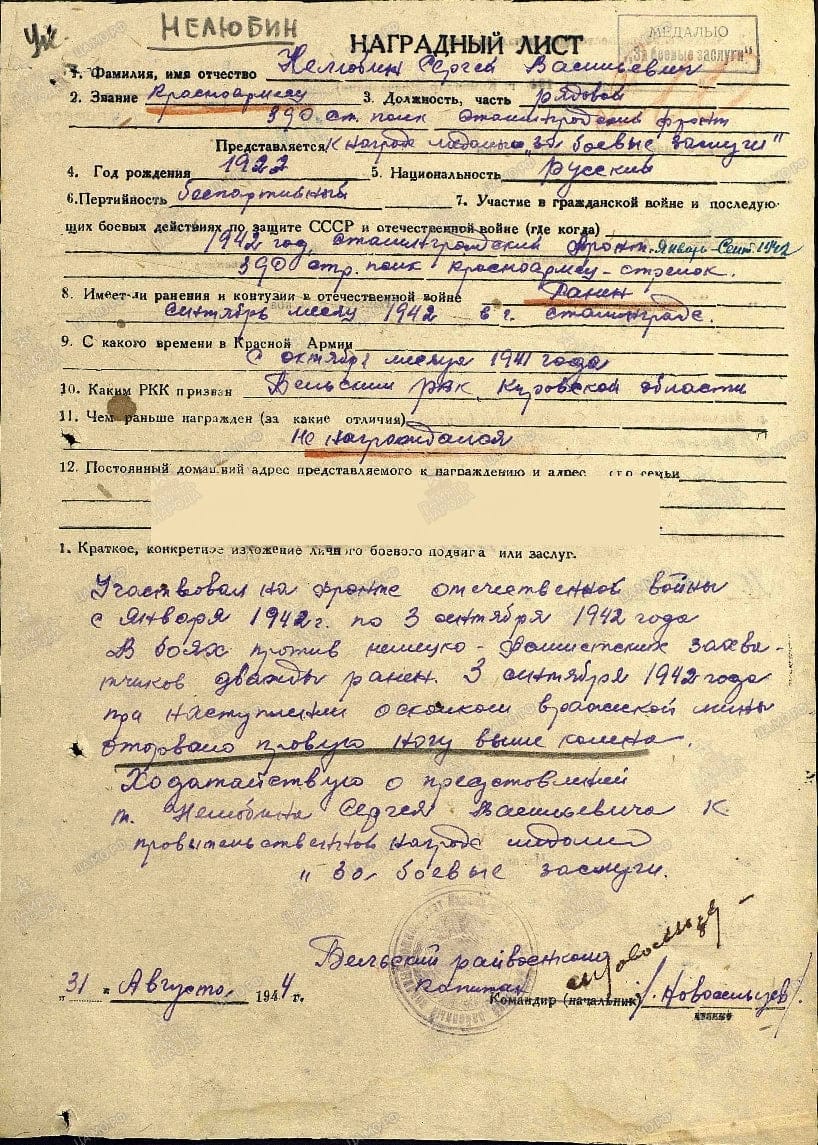 НЕЛЮБИН
НАГРАДНЫЙ ЛИСТ
МЕДАЛЬЮ
"За боевые заслуги"
1. Фамилия, имя отчество Нелюбин Сергей Васильевич
2. Звание Красноармеец 3. Должность, часть рядовой
390 ст. полк Сталинградский фронт
Представляется к награде медалью "За боевые заслуги"
4. Год рождения 1922 5. Национальность Русский
6. Пертийность беспартийный 7. Участие в гражданской войне и последую-
щих боевых действиях по защите СССР и отечественной войне (где когда)
1942 год, Сталинградский фронт. Январь-Сент. 1942
390 стр. полк красноармеец-стрелок.
8. Имеет-ли ранения и контузии в отечественной войне Ранен
Сентябрь месяц 1942 в г. Сталинграде.
9. С какого времени в Красной Армии
С октября месяца 1941 года
10. Каким РКК призван Бельским рвк, Кировской области
11. Чем раньше награжден (за какие отличия)
Не награждался
12. Постоянный домашний адрес представляемого к награждению и адрес его семьи
1. Краткое, конкретное изложение личного боевого подвига или заслуг.
Участвовал на фронте отечественной войны
с Января 1942 г. по 3 сентября 1942 года
В боях против немецко-фашистских захва-
тчиков дважды ранен. 3 сентября 1942 года
при наступлении осколком вражеской мины
оторвало правую ногу выше колена.
Ходатайствую о предстовлений
т. Нелюбина Сергея Васильевича к
провительственной награде медали
"За боевые заслуги.
Бельский райвоенком
капитан
"31" Августа 1944 г.
Командир (начальник) /Новосельцев/